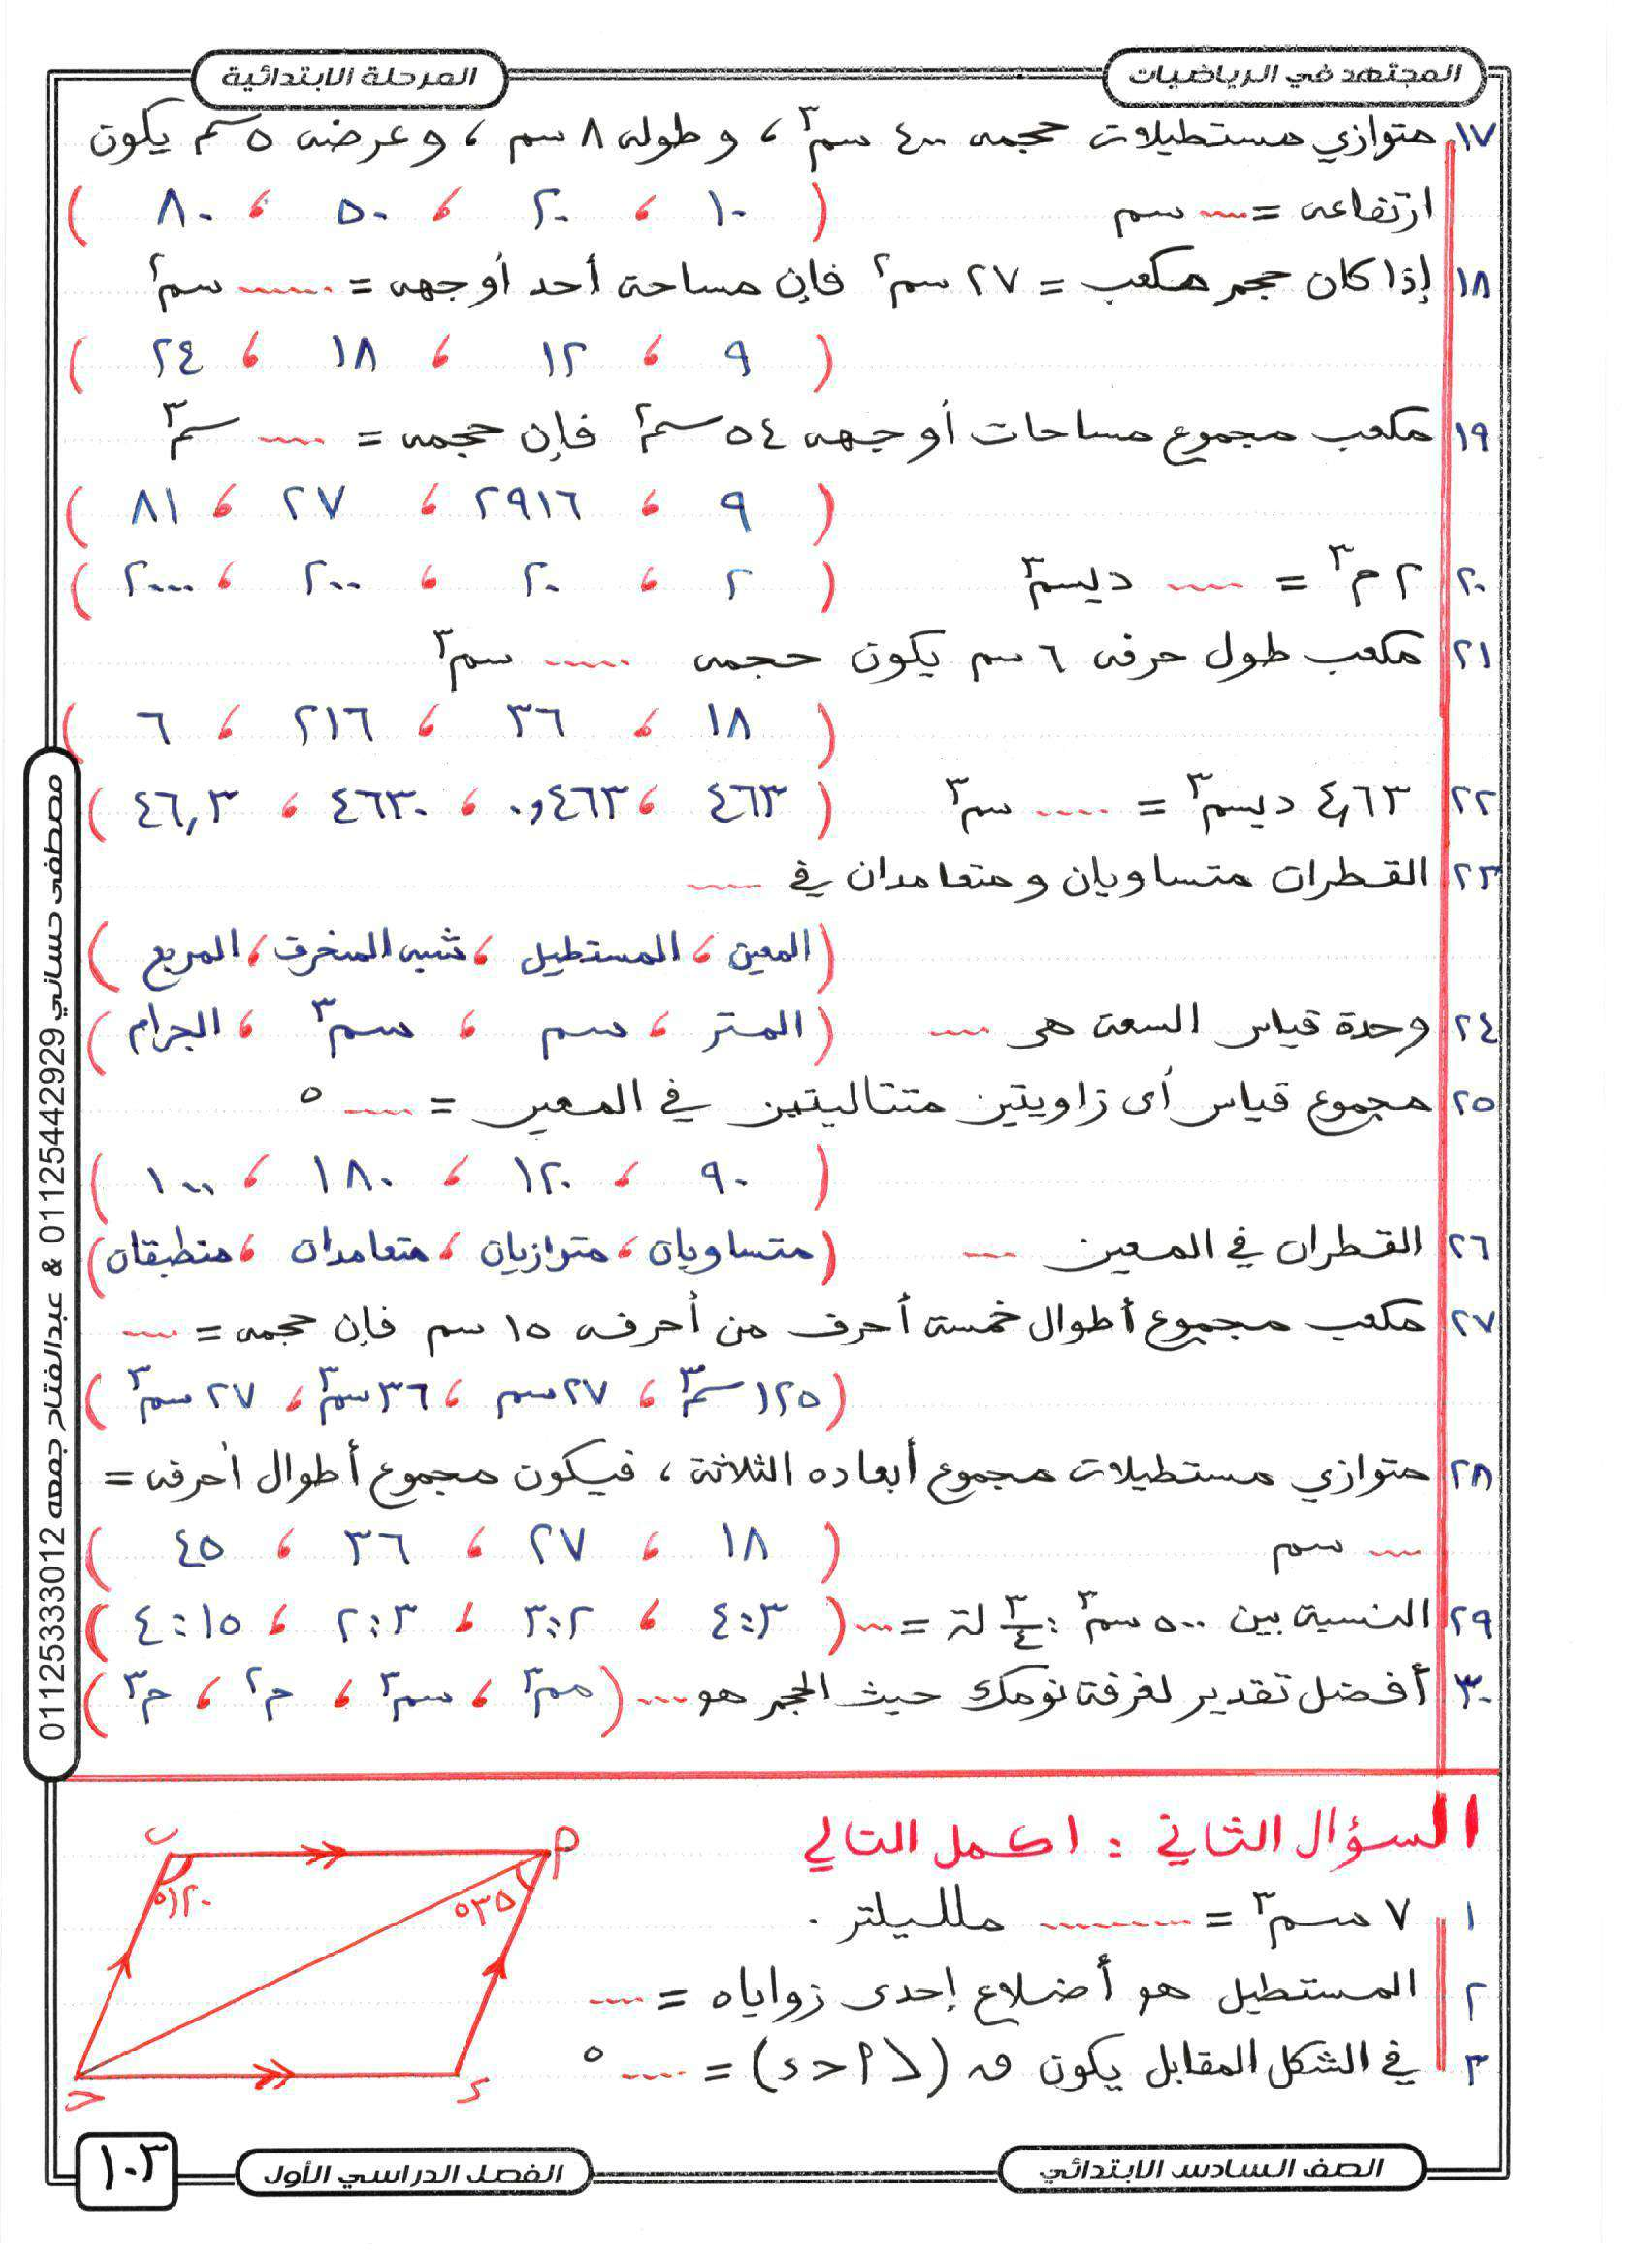 المجتهد في الرياضيات
المرحلة الابتدائية
١٧ متوازي مستطيلات حجمه ٤٠٠ سم٣ ، وطوله ٨ سم ، وعرضه ٥ سم يكون
ارتفاعه = ..... سم ( ١٠ ، ٢٠ ، ٥٠ ، ٨٠ )
١٨ إذا كان حجم مكعب = ٢٧ سم٢ فإن مساحة أحد أوجهه = ....... سم٢
( ٩ ، ١٢ ، ١٨ ، ٢٤ )
١٩ مكعب مجموع مساحات أوجهه ٥٤ سم٢ فإن حجمه = ..... سم٣
( ٩ ، ٢٩١٦ ، ٢٧ ، ٨١ )
٢٠ ٢ م٣ = ..... ديسم٣ ( ٢ ، ٢٠ ، ٢٠٠ ، ٢٠٠٠ )
٢١ مكعب طول حرفه ٦ سم يكون حجمه ..... سم٣
( ١٨ ، ٣٦ ، ٢١٦ ، ٦ )
٢٢ ٤,٦٣ ديسم٣ = ..... سم٣ ( ٤٦٣ ، ٠,٤٦٣ ، ٤٦٣٠ ، ٤٦,٣ )
٢٣ القطران متساويان ومتعامدان في .....
( المعين ، المستطيل ، شبه المنحرف ، المربع )
٢٤ وحدة قياس السعة هى ..... ( المتر ، سم ، سم٣ ، الجرام )
٢٥ مجموع قياس أى زاويتين متتاليتين في المعين = ..... °
( ٩٠ ، ١٢٠ ، ١٨٠ ، ١٠٠ )
٢٦ القطران في المعين ..... ( متساويان ، متوازيان ، متعامدان ، منطبقان )
٢٧ مكعب مجموع أطوال خمسة أحرف من أحرفه ١٥ سم فإن حجمه = .....
( ١٢٥ سم٣ ، ٢٧ سم ، ٣٦ سم٣ ، ٢٧ سم٣ )
٢٨ متوازي مستطيلات مجموع أبعاده الثلاثة ، فيكون مجموع أطوال أحرفه =
..... سم ( ١٨ ، ٢٧ ، ٣٦ ، ٤٥ )
٢٩ النسبة بين ٥٠٠ سم٣ : ٣/٤ لتر = .... ( ٤:٣ ، ٣:٢ ، ٢:٣ ، ٤:١٥ )
٣٠ أفضل تقدير لغرفة نومك حيث الحجم هو .... ( مم٣ ، سم٣ ، م٢ ، م٣ )
السؤال الثاني : اكمل التالي
١ ٧ سم٣ = ......... ملليلتر .
٢ المستطيل هو أضلاع إحدى زواياه = ....
٣ في الشكل المقابل يكون ق (∠ ٢ ح ء) = ..... °
ب
٢
١٢٠°
٣٥°
ح
ء
مصطفى حساني 01125442929 & عبدالفتاح جمعه 01125333012
الصف السادس الابتدائي
الفصل الدراسي الأول
١٠٣